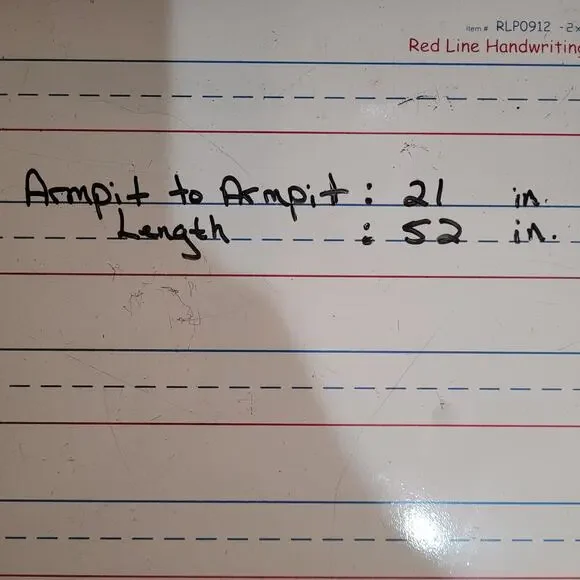 item # RLP0912 -2x
Red Line Handwriting
Armpit to Armpit : 21 in.
Length : 52 in.